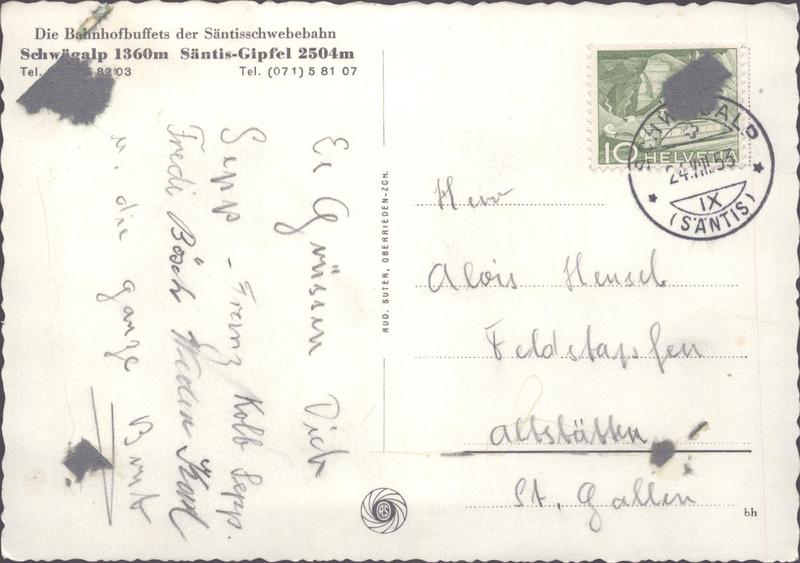 Die Bahnhofbuffets der Säntisschwebebahn
Schwägalp 1360m Säntis-Gipfel 2504m
Tel. 8203 Tel. (071) 5 81 07
Es Grüssen Dich
Sepp - Franz Kolb Sepp.
Fredi Bösch Karl
u. die ganze
RUD. SUTER, OBERRIEDEN-ZCH.
10 HELVETIA
SCHWÄGALP
24.VIII.53
IX
(SÄNTIS)
Herr
Alois Hensel
Feldstapfen
Altstätten
St. Gallen
bh